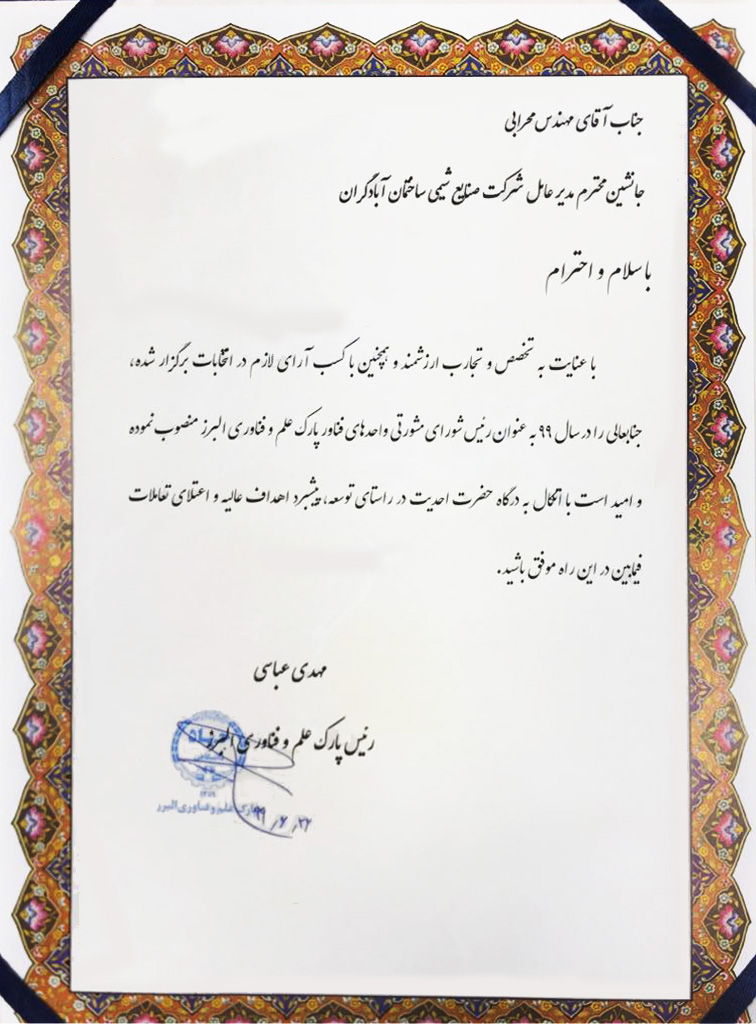 جناب آقای مهندس محرابی
جانشین محترم مدیر عامل شرکت صنایع شیمی ساختمان آبادگران
با سلام و احترام
با عنایت به تخصص و تجارب ارزشمند و همچنین با کسب آرای لازم در انتخابات برگزار شده،
جنابعالی را در سال ۹۹ به عنوان رئیس شورای مشورتی واحدهای فناور پارک علم و فناوری البرز منصوب نموده
و امید است با اتکال به درگاه حضرت احدیت در راستای توسعه، پیشبرد اهداف عالیه و اعتلای تعاملات
فیمابین در این راه موفق باشید.
مهدی عباسی
رئیس پارک علم و فناوری البرز
پارک علم و فناوری البرز